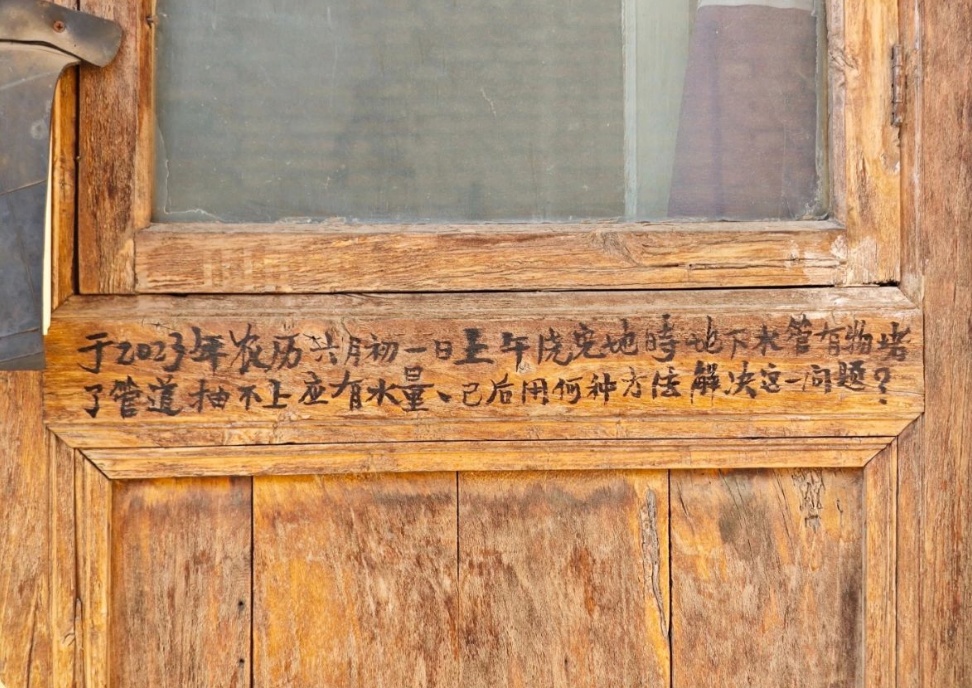 于2023年农历六月初一日上午浇完地时地下水管有物堵
了管道抽不上应有水量、已后用何种方法解决这一问题?